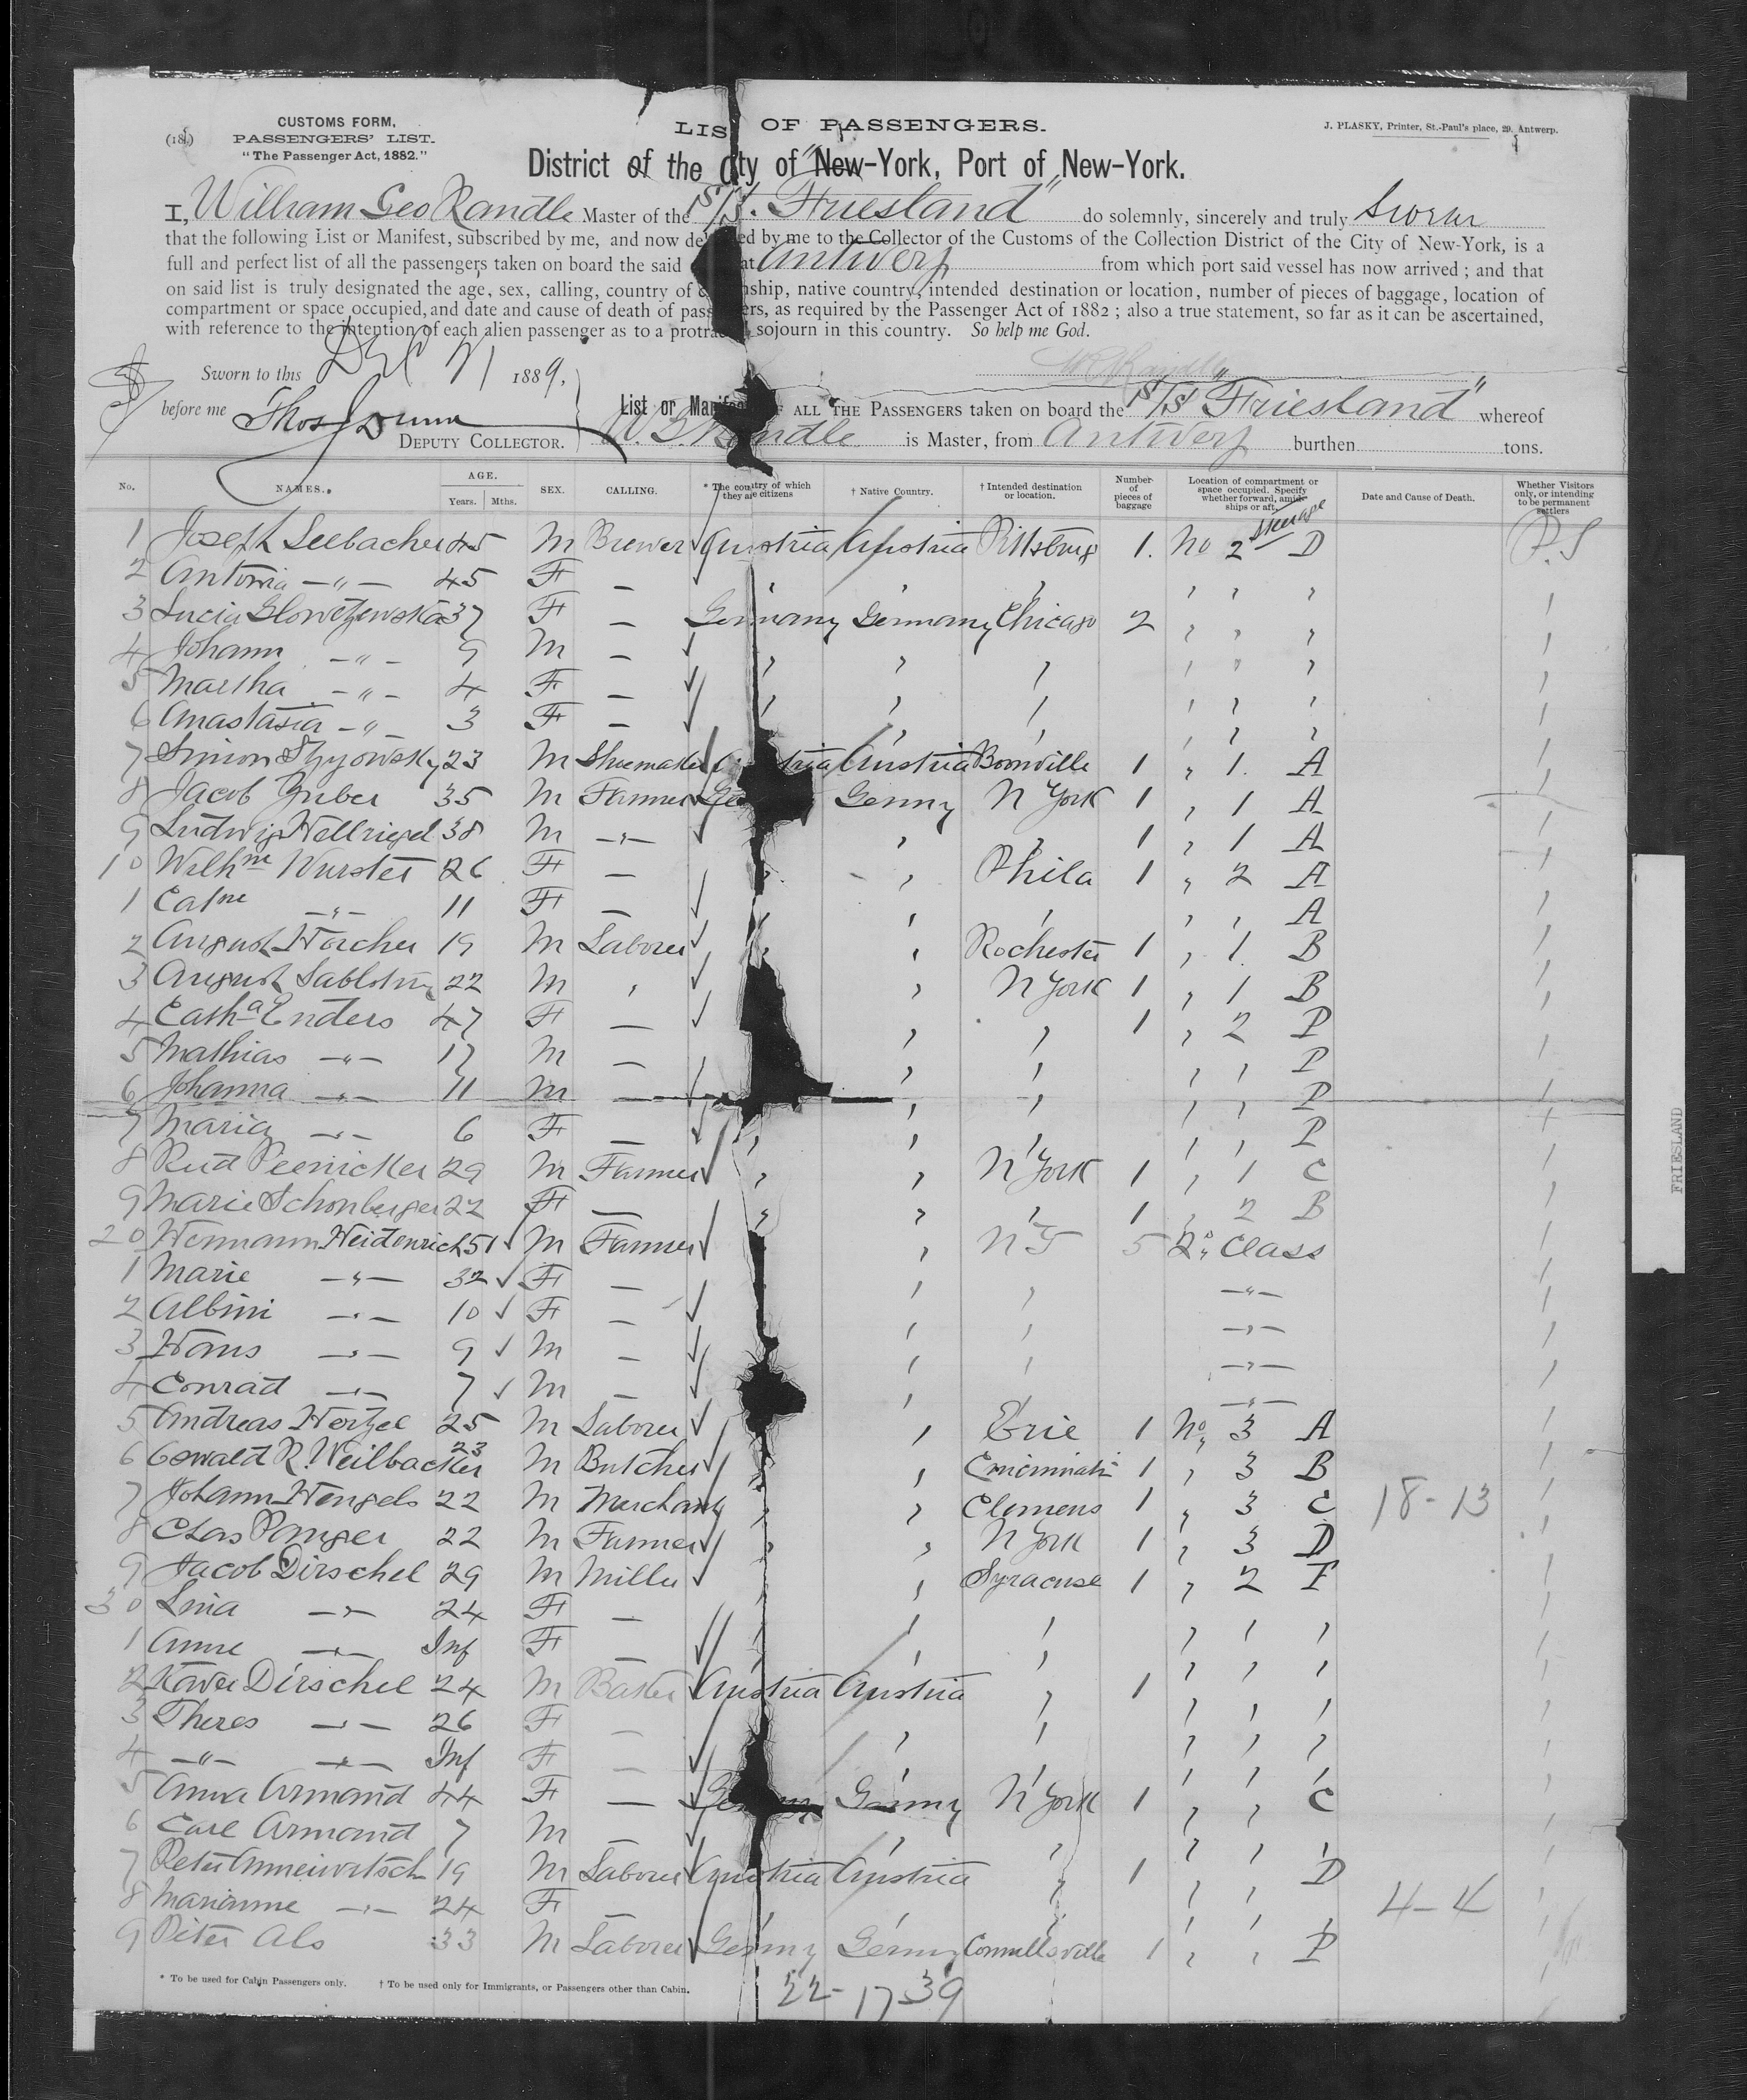 CUSTOMS FORM,
PASSENGERS' LIST.
"The Passenger Act, 1882."
LIS OF PASSENGERS.
J. PLASKY, Printer, St.-Paul's place, 29, Antwerp.
District of the City of New-York, Port of New-York.
I, William Geo Randle Master of the S/S. "Friesland" do solemnly, sincerely and truly Swear
that the following List or Manifest, subscribed by me, and now de ed by me to the Collector of the Customs of the Collection District of the City of New-York, is a
full and perfect list of all the passengers taken on board the said at Antwerp from which port said vessel has now arrived ; and that
on said list is truly designated the age, sex, calling, country of c nship, native country, intended destination or location, number of pieces of baggage, location of
compartment or space occupied, and date and cause of death of pass ers, as required by the Passenger Act of 1882 ; also a true statement, so far as it can be ascertained,
with reference to the intention of each alien passenger as to a protrac sojourn in this country. So help me God.
Sworn to this Dec 21 1889,
before me Thos Dunn
DEPUTY COLLECTOR.
List or Manifes OF ALL THE PASSENGERS taken on board the S/S "Friesland" whereof
W. G. Randle is Master, from Antwerp burthen tons.
No. NAMES. AGE. Years. Mths. SEX. CALLING. * The country of which they are citizens † Native Country. † Intended destination or location. Number of pieces of baggage Location of compartment or space occupied. Specify whether forward, amidships or aft. Date and Cause of Death. Whether Visitors only, or intending to be permanent settlers
1 Joseph Seebacher 45 M Brewer Austria Austria Pittsburg 1. No 2 Steerage D P.S
2 Antonia -"- 45 F — " " " " " " "
3 Lucia Glowczewska 37 F — Germany Germany Chicago 2 " " " "
4 Johann -"- 9 M — " " " " " " "
5 Martha -"- 4 F — " " " " " " "
6 Anastasia -"- 3 F — " " " " " " "
7 Simon 23 M Shoemaker tria Austria Boonville 1 " 1. A "
8 Jacob Gruber 35 M Farmer Ge Germy N York 1 " 1 A "
9 Ludwig Hellriegel 38 M -"- " " 1 " 1 A "
10 Wilhme Wurster 26 F — " " Phila 1 " 2 A "
1 Catne -"- 11 F — " " " " " A "
2 August Horcher 19 M Laborer " " Rochester 1 " 1. B "
3 August 22 M " " N York 1 " 1 B "
4 Catha Enders 47 F — " " 1 " 2 P "
5 Mathias -"- 17 M — " " " " P "
6 Johanna -"- 11 M — " " " " P "
7 Maria -"- 6 F — " " " " " P "
8 Rud 29 M Farmer " " N York 1 " 1 C "
9 Marie Schonberger 22 F — " " " 1 " 2 B "
20 Hermann Heidenrich 51 M Farmer " N Y 5 2" Class "
1 Marie -"- 32 F — " " -"- "
2 Albini -"- 10 F — " " -"- "
3 Hans -"- 9 M — " " -"- "
4 Conrad -"- 7 M — " -"- "
5 Andreas Hertzel 25 M Laborer " Erie 1 No " 3 A "
6 Oswald R. Weilbacher 23 M Butcher " " Cincinnati 1 " 3 B "
7 Johann Hengels 22 M Merchant " " Clemens 1 " 3 C 18-13 "
8 Chas Panger 22 M Farmer " " N York 1 " 3 D "
9 Jacob Dirschel 29 M Miller " " Syracuse 1 " 2 F "
30 Lina -"- 24 F — " " " " " "
1 Anne -"- Inf F — " " " " " "
2 Xaver Dirschel 24 M Baker Austria Austria " 1 " " " "
3 Theres -"- 26 F — " " " " " "
4 -"- -"- Inf F — " " " " " "
5 Anna Armand 44 F — Ge Germy N York 1 " " C "
6 Carl Armand 7 M — " " " " " "
7 Peter 19 M Laborer Austria Austria " 1 " " D "
8 Marianne -"- 24 F — " " " " " 4-4 "
9 Peter Als 33 M Laborer Germy Germy Connellsville 1 " " P "
* To be used for Cabin Passengers only. † To be used only for Immigrants, or Passengers other than Cabin.
22-17-39
FRIESLAND